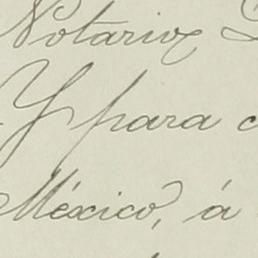 Notario
Y para
México, á